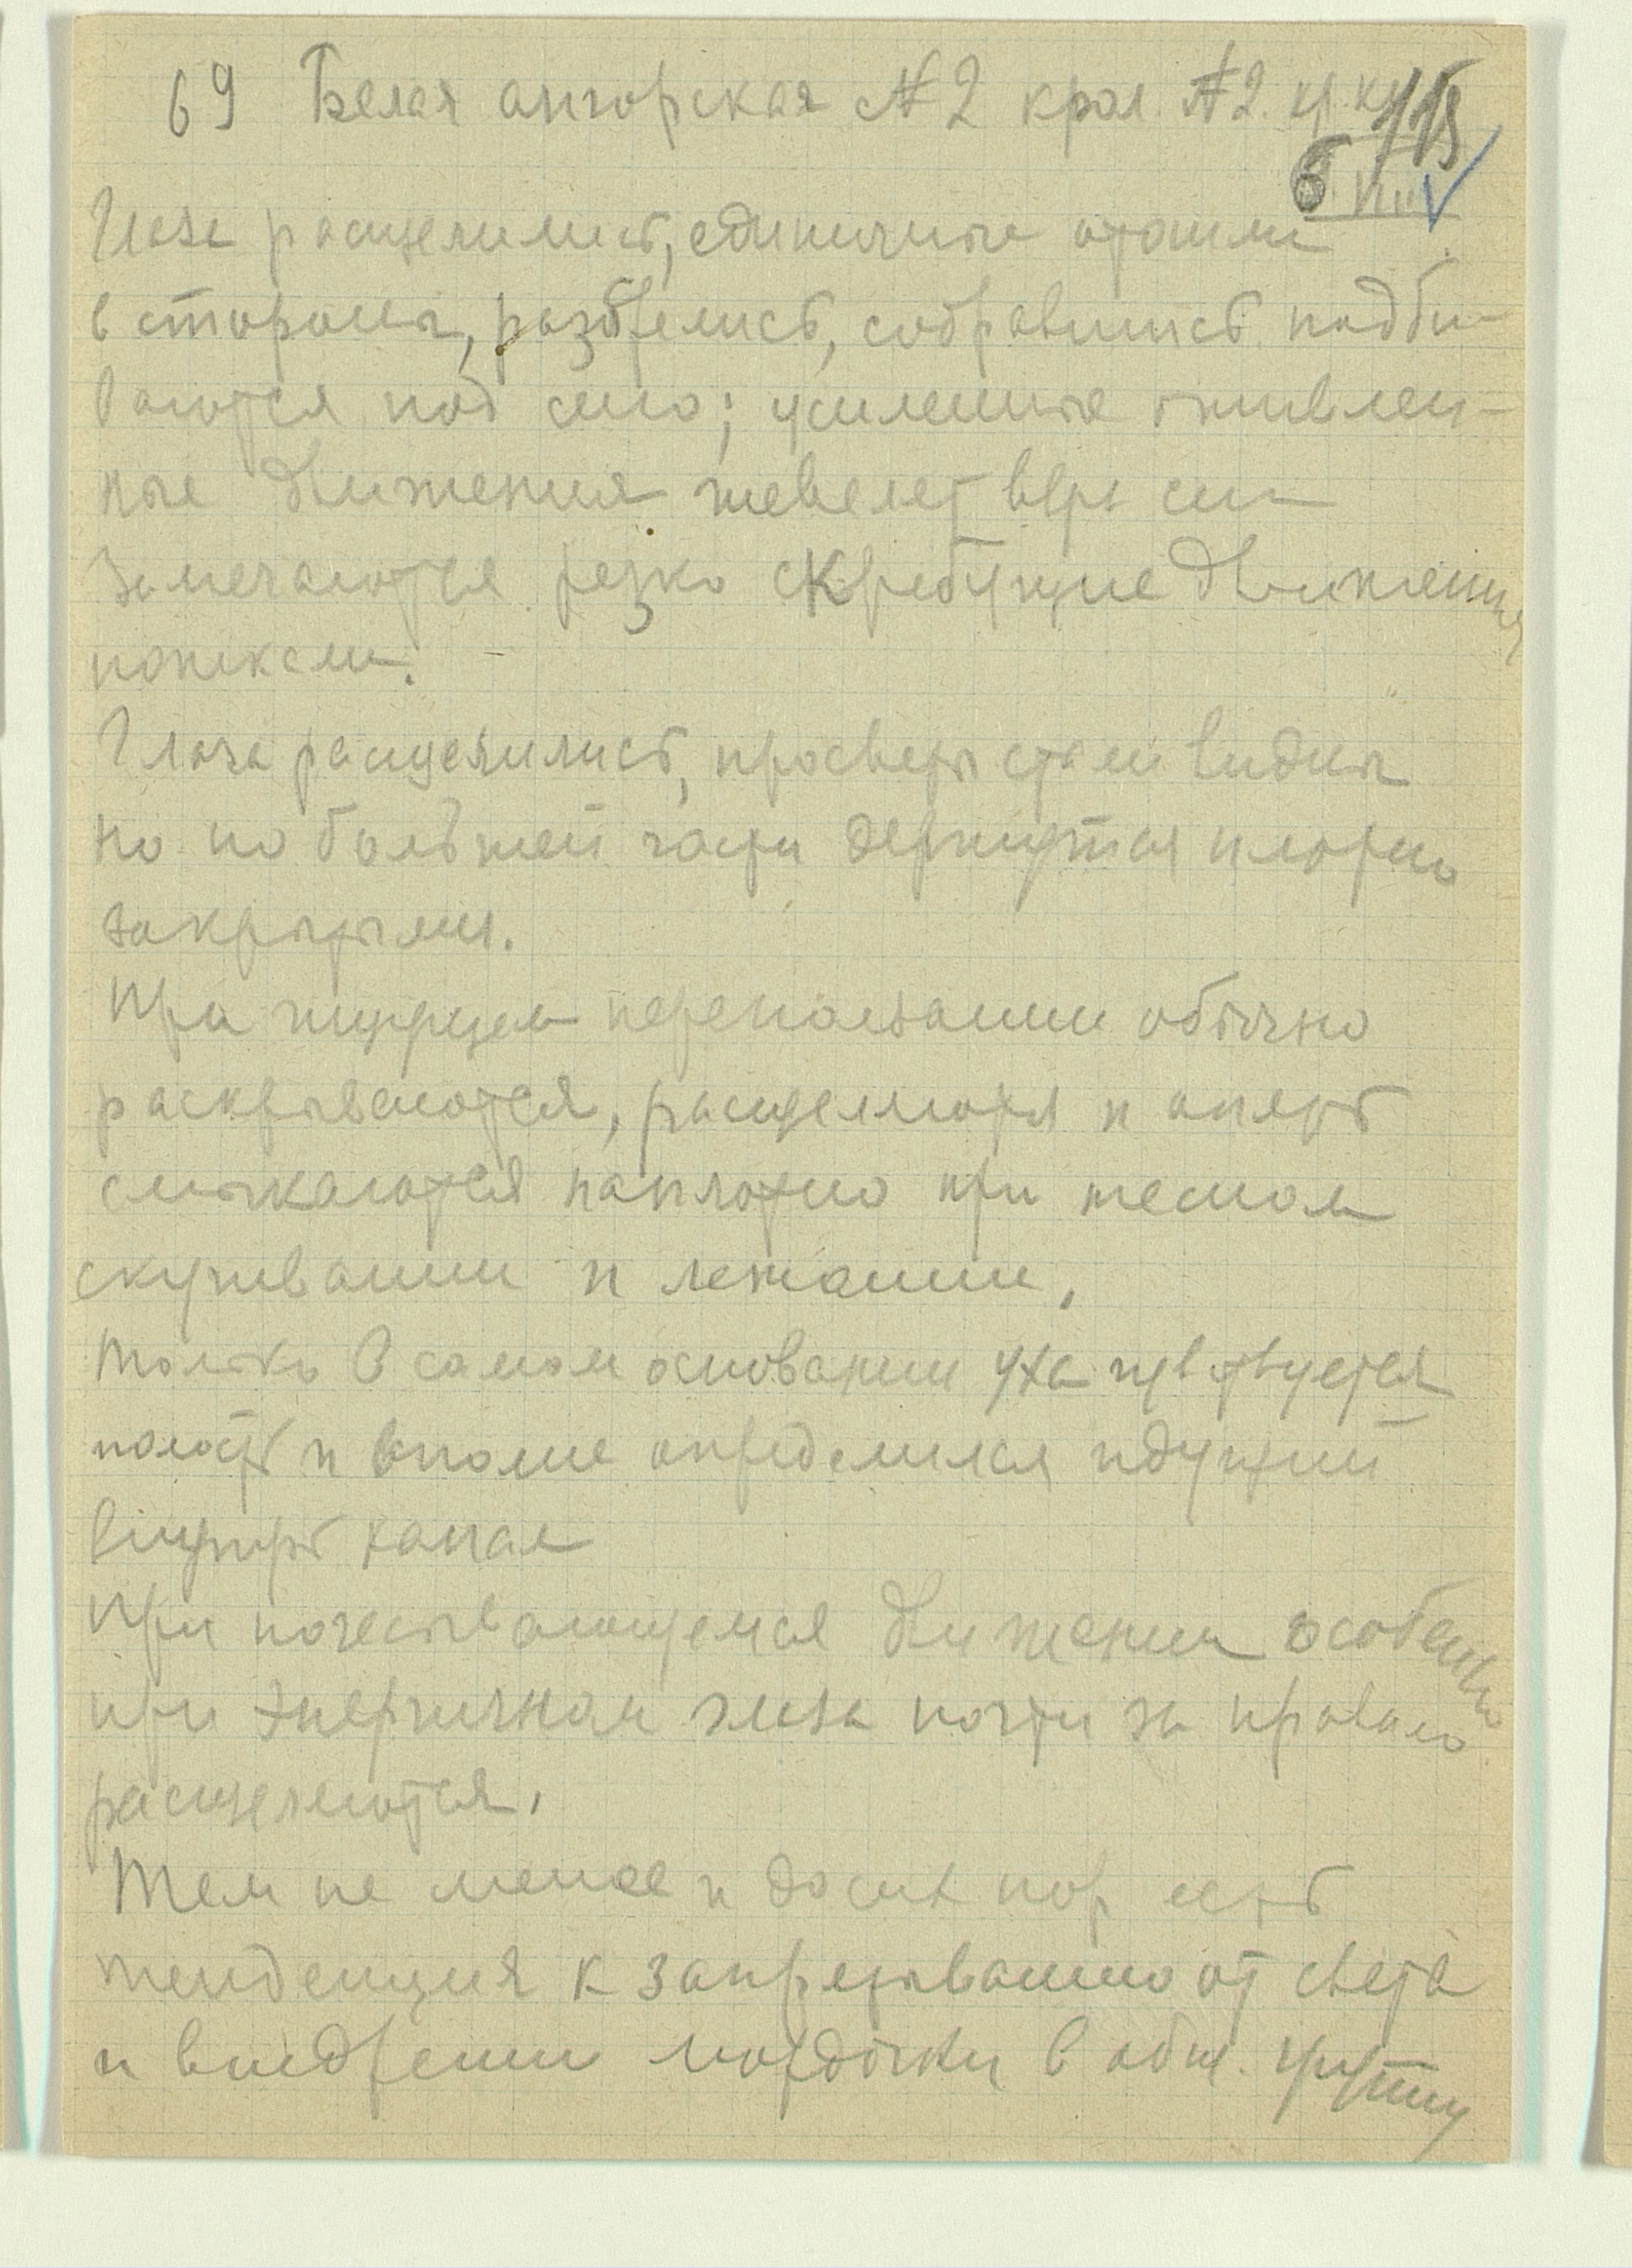 69 Белая ангорская №2 крол. №2.
115
6 VIII
Глаза расщелились, единичные отошли
в стороны, разбрелись, собравшись подби-
ваются под сено; усиленные оживлен-
ные движения шевелят
Замечаются резко скребущие движения
ножками.
Глаза расщелились, просветы стали видны
но по большей части держутся плотно
закрытыми.
При переползании обычно
раскрываются, расщеляются и опять
смыкаются наплотно при тесном
скучивании и лежании.
Только в самом основании уха чувствуется
полость и вполне определился идущий
внутрь канал
При почесывающемся движении особенно
при энергичном глаза почти за правило
расщеляются.
Тем не менее и до сих пор есть
тенденция к запрятыванию от света
и внедрении мордочки в общ. группу